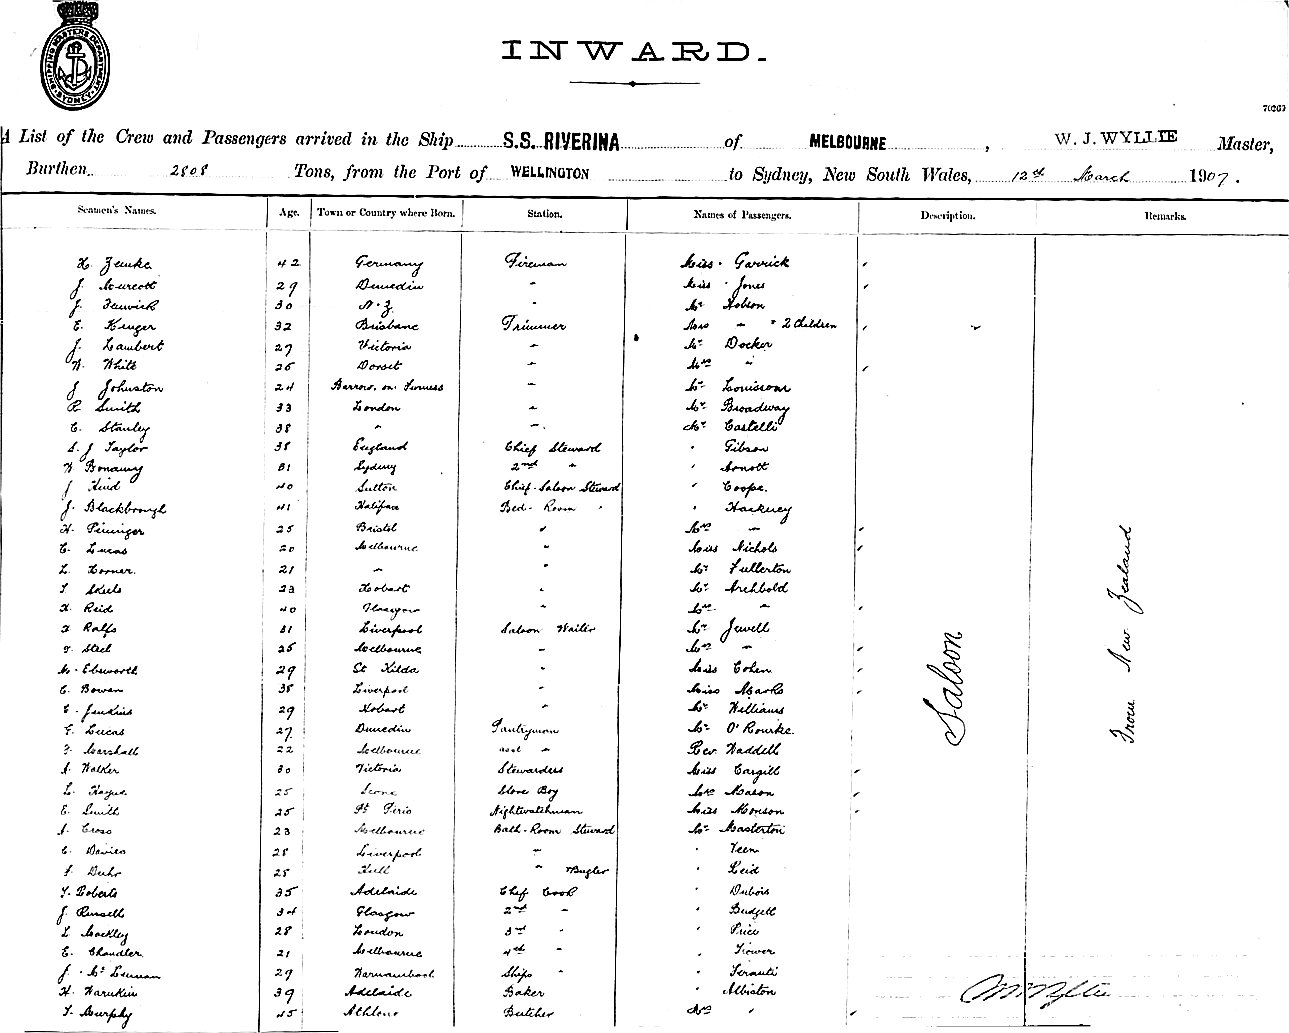 SHIPPING MASTERS DEPARTMENT SYDNEY
INWARD.
70269
A List of the Crew and Passengers arrived in the Ship S.S. RIVERINA of MELBOURNE, W. J. WYLLIE Master,
Burthen 2808 Tons, from the Port of WELLINGTON to Sydney, New South Wales, 12th March 1907.
Seamen's Names. Age. Town or Country where Born. Station. Names of Passengers. Description. Remarks.
H. Zemke 42 Germany Fireman Miss Garrick
J. Murcott 29 Dunedin " Miss Jones
J. Fenwick 30 N.Z. " Mr Hobson
E. Kruger 32 Brisbane Trimmer Mrs " " 2 Children
J. Lambert 27 Victoria " Mr Docker
W. White 26 Dorset " Mrs "
J Johnston 24 Barrow on Furness " Mr Louisson
R Smith 33 London " Mr Broadway
C. Stanley 38 " " Mr Castelli
S. J Taylor 38 England Chief Steward " Gibson
31 Sydney 2nd " " Arnott
J Hind 40 Sutton Chief Saloon Steward " Coope.
J. Blackbrough 41 Halifax Bed-Room " " Hackney
H. 25 Bristol " Mrs "
C. Lucas 20 Melbourne " Miss Nichols
L. Horner. 21 " " Mr Fullerton
23 Hobart " Mr Archbold
Reid 40 Glasgow " Mrs "
Ralfs 31 Liverpool Saloon Waiter Mr Jewell
Steel 25 Melbourne " Mrs "
M. Ebsworth 29 St Kilda " Miss Cohen
C. Bowen 38 Liverpool " Miss Marks
E. Jenkins 29 Hobart " Mr Williams
F. Lucas 27 Dunedin Pantryman Mr O'Rourke.
Marshall 22 Melbourne asst " Rev Waddell
A. Walker 30 Victoria Stewardess Miss Cargill
L. 25 Store Boy Mrs Mason
E. Smith 25 Pt Pirie Nightwatchman Miss Monson
A. Cross 23 Melbourne Bath-Room Steward Mr Masterton
C. Davies 28 Liverpool " "
28 Hull " & Bugler " Reid
T. Roberts 35 Adelaide Chief Cook " Dubois
J. Russell 34 Glasgow 2nd " " Budgett
L Mackley 28 London 3rd " " Price
E. Chandler 21 Melbourne 4th " "
J. McLennan 29 Warrnambool Ships " "
H. 39 Adelaide Baker " Albiston
T. Murphy 45 Athlone Butcher Mrs "
Saloon
From New Zealand